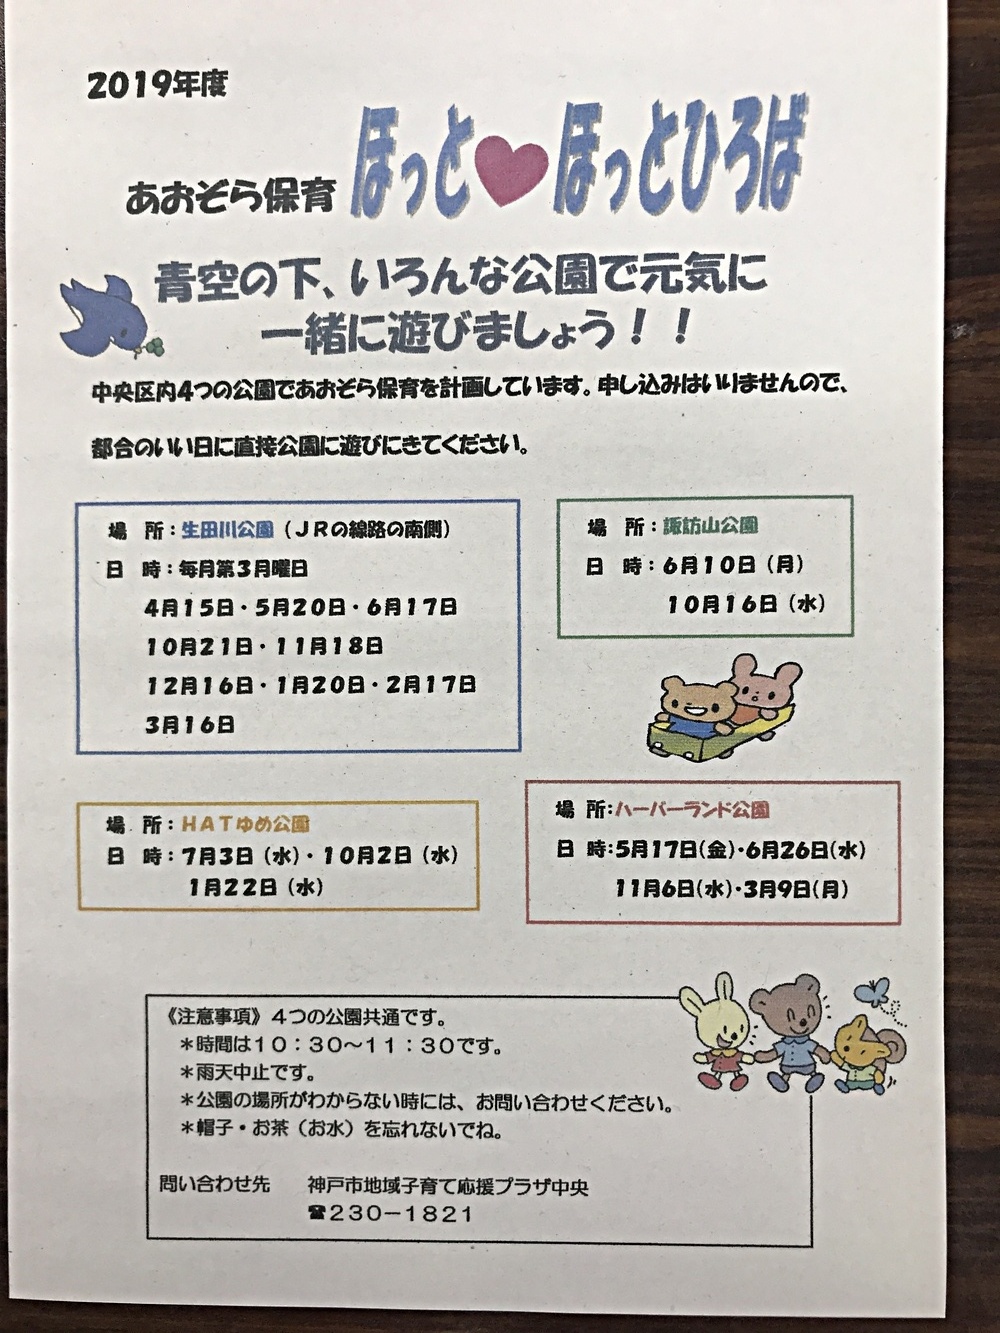 2019年度
あおぞら保育 ほっと♥ほっとひろば
青空の下、いろんな公園で元気に
一緒に遊びましょう！！
中央区内4つの公園であおぞら保育を計画しています。申し込みはいりませんので、
都合のいい日に直接公園に遊びにきてください。
場　所：生田川公園（ＪＲの線路の南側）
日　時：毎月第３月曜日
4月15日・5月20日・6月17日
10月21日・11月18日
12月16日・1月20日・2月17日
3月16日
場　所：諏訪山公園
日　時：6月10日（月）
10月16日（水）
場　所：ＨＡＴゆめ公園
日　時：7月3日（水）・10月2日（水）
1月22日（水）
場　所：ハーバーランド公園
日　時：5月17日(金)・6月26日(水)
11月6日(水)・3月9日(月)
《注意事項》４つの公園共通です。
＊時間は１０：３０～１１：３０です。
＊雨天中止です。
＊公園の場所がわからない時には、お問い合わせください。
＊帽子・お茶（お水）を忘れないでね。
問い合わせ先　神戸市地域子育て応援プラザ中央
☎２３０－１８２１